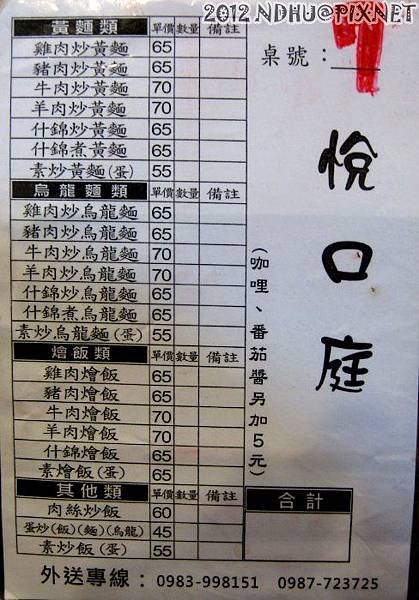 2012 NDHU@PIXNET
黃麵類 單價 數量 備註
雞肉炒黃麵 65
豬肉炒黃麵 65
牛肉炒黃麵 70
羊肉炒黃麵 70
什錦炒黃麵 65
什錦煮黃麵 65
素炒黃麵(蛋) 55
烏龍麵類 單價 數量 備註
雞肉炒烏龍麵 65
豬肉炒烏龍麵 65
牛肉炒烏龍麵 70
羊肉炒烏龍麵 70
什錦炒烏龍麵 65
什錦煮烏龍麵 65
素炒烏龍麵(蛋) 55
燴飯類 單價 數量 備註
雞肉燴飯 65
豬肉燴飯 65
牛肉燴飯 70
羊肉燴飯 70
什錦燴飯 65
素燴飯(蛋) 65
其他類 單價 數量 備註
肉絲炒飯 60
蛋炒(飯)(麵)(烏龍) 45
素炒飯(蛋) 55
桌號：
悅口庭
(咖哩、番茄醬另加5元)
合計
外送專線：0983-998151 0987-723725